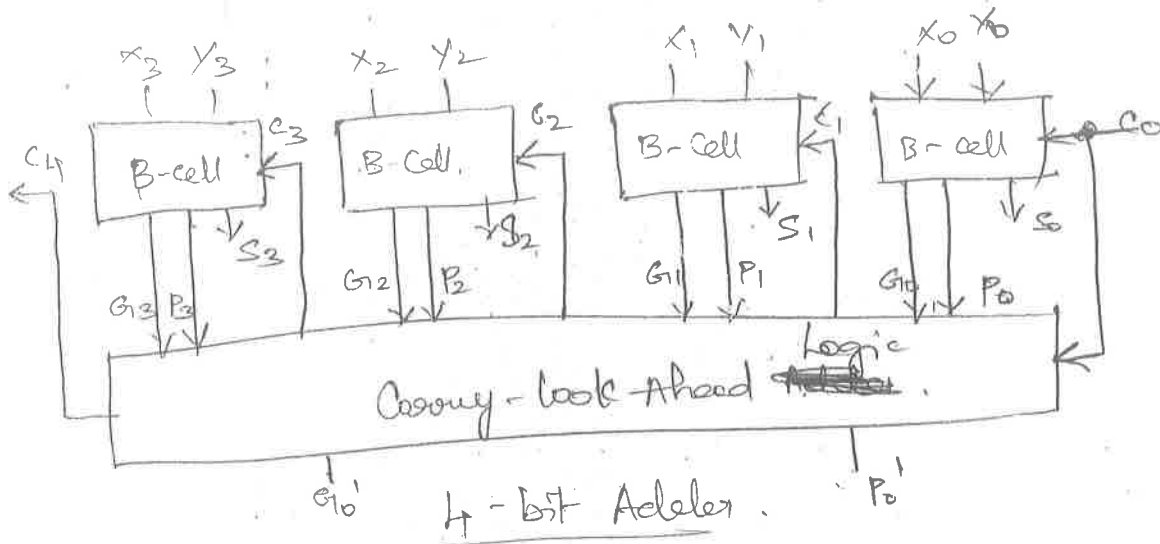 X3 Y3 X2 Y2 X1 Y1 X0 Y0
C4 B-cell C3 B-Cell. C2 B-Cell C1 B-cell C0
S3 S2 S1 S0
G3 P3 G2 P2 G1 P1 G0 P0
Logic
Carry-Look-Ahead .
G0' P0'
4-bit Adder.